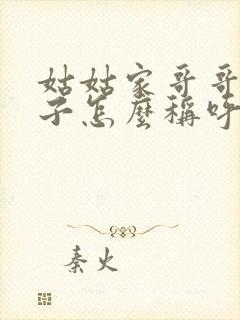 姑姑家哥哥
子怎麼稱呼
秦火